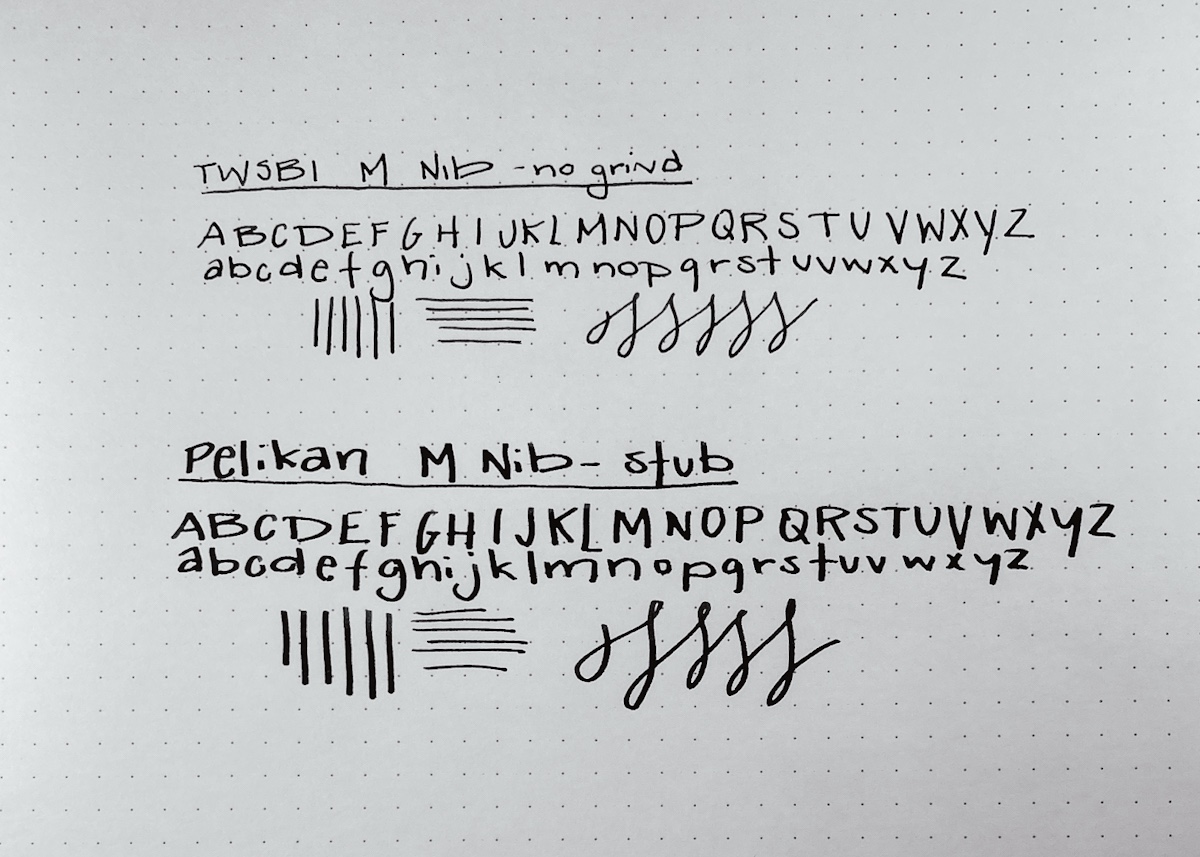 TWSBI M Nib - no grind
A B C D E F G H I J K L M N O P Q R S T U V W X Y Z
a b c d e f g h i j k l m n o p q r s t u v w x y z
Pelikan M Nib - stub
A B C D E F G H I J K L M N O P Q R S T U V W X Y Z
a b c d e f g h i j k l m n o p q r s t u v w x y z